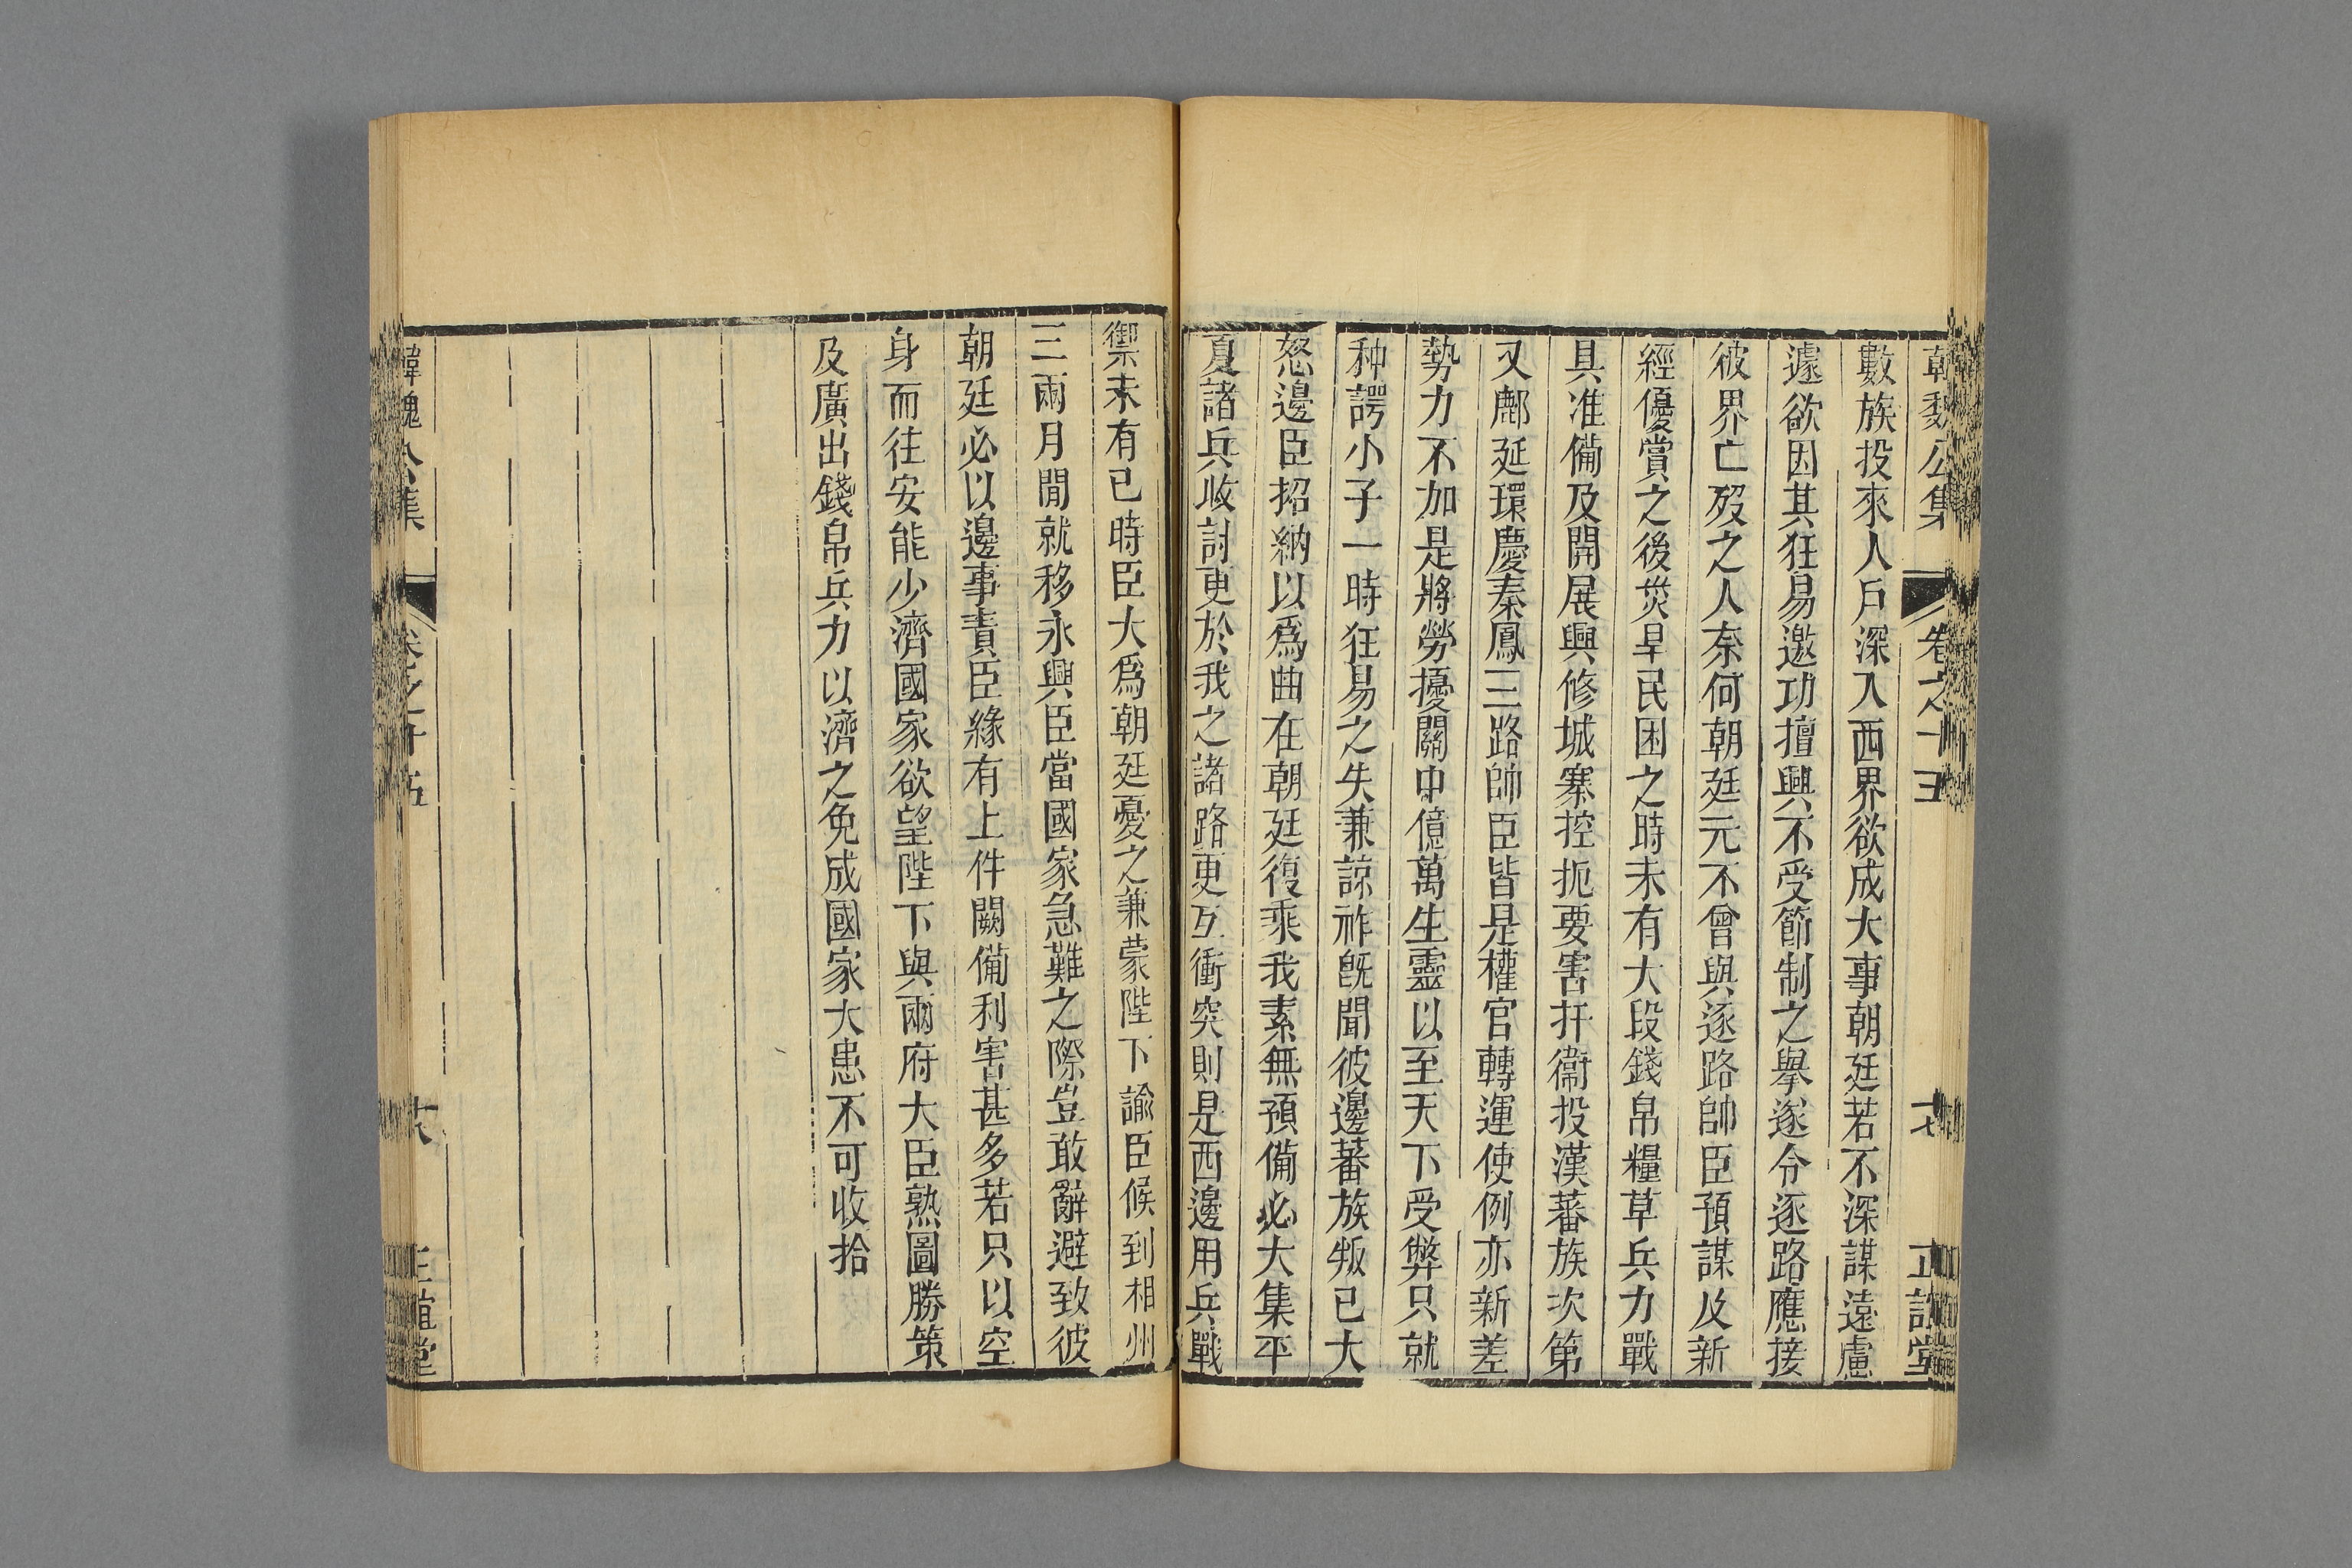 韓魏公集 卷之十五 十七 正誼堂
數族投來人戶深入西界欲成大事朝廷若不深謀遠慮
遽欲因其狂易邀功擅興不受節制之舉遂令逐路應接
彼界亡歿之人奈何朝廷元不曾與逐路帥臣預謀及新
經優賞之後災旱民困之時未有大段錢帛糧草兵力戰
具准備及開展興修城寨控扼要害扞衞投漢蕃族次第
又鄜延環慶秦鳳三路帥臣皆是權官轉運使例亦新差
勢力不加是將勞擾關中億萬生靈以至天下受弊只就
种諤小子一時狂易之失兼諒祚旣聞彼邊蕃族叛已大
怒邊臣招納以爲曲在朝廷復乘我素無預備必大集平
夏諸兵收討更於我之諸路更互衝突則是西邊用兵戰
禦未有已時臣大爲朝廷憂之兼蒙陛下諭臣候到相州
三兩月閒就移永興臣當國家急難之際豈敢辭避致彼
朝廷必以邊事責臣緣有上件闕備利害甚多若只以空
身而往安能少濟國家欲望陛下與兩府大臣熟圖勝策
及廣出錢帛兵力以濟之免成國家大患不可收拾
韓魏公集 卷之十五 十八 正誼堂